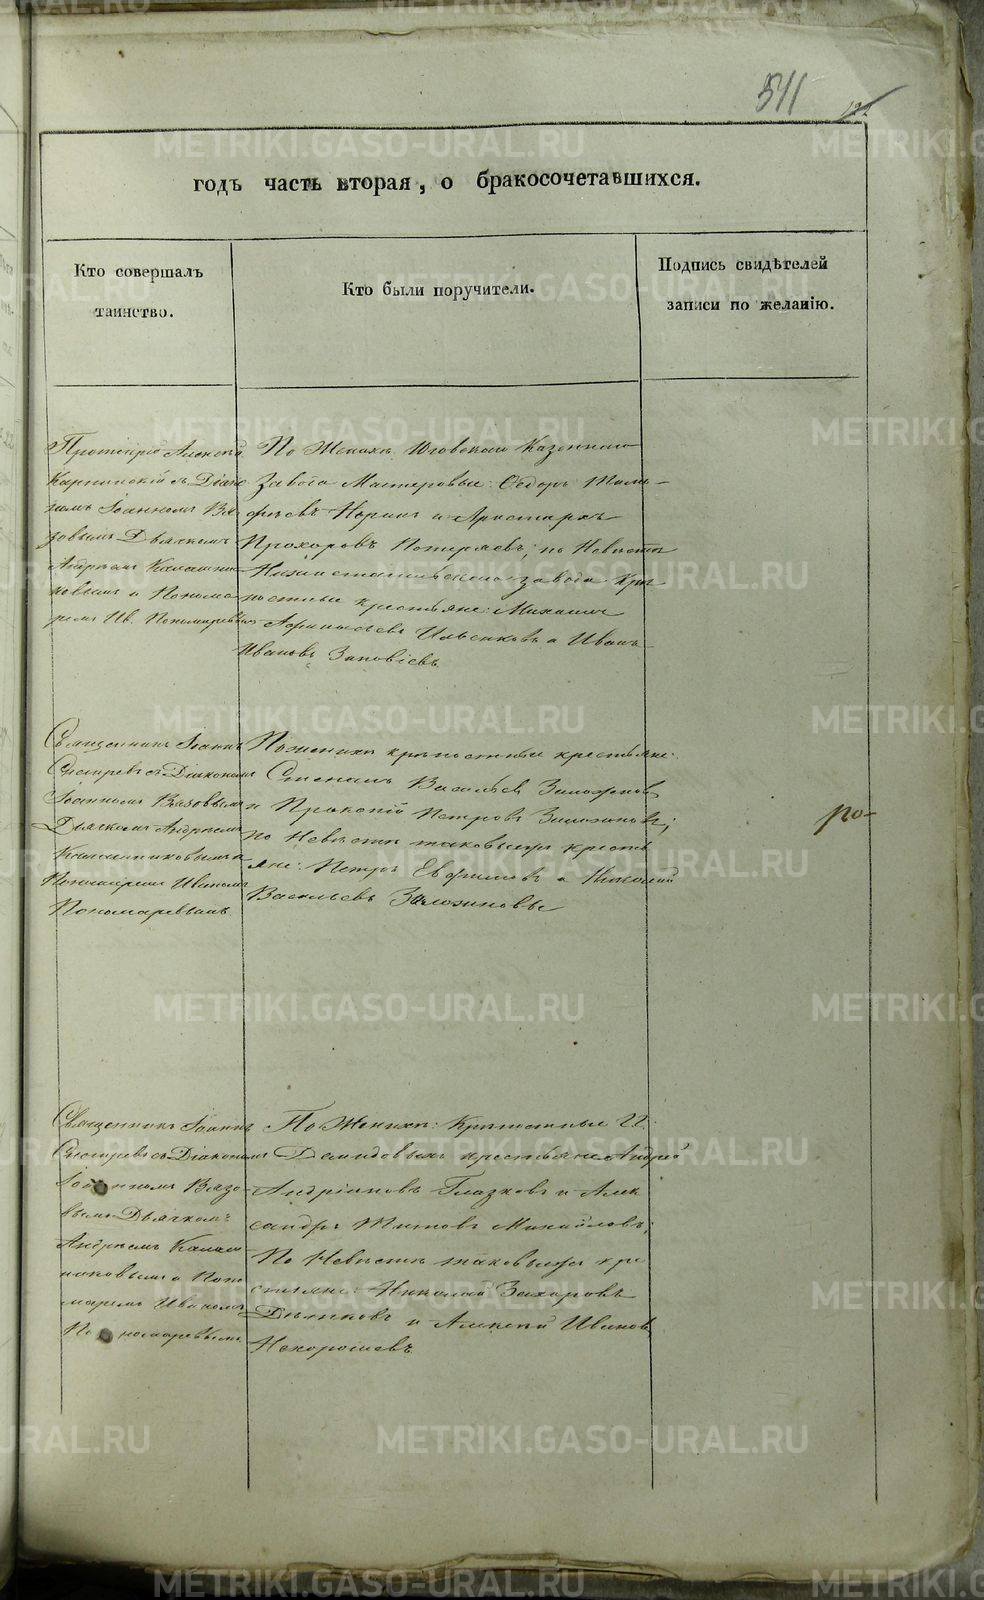 511
годъ часть вторая, о бракосочетавшихся.
Кто совершалъ
таинство.
Кто были поручители.
Подпись свидѣтелей
записи по желанію.
Протоіерей Алексѣй
Карпинскій съ Діако
номъ Іоанномъ Вя
зовымъ Дьячкомъ
Андреемъ Калашни
ковымъ и Понома
ремъ Ив. Пономаревымъ
По Женихѣ Юговскаго Казеннаго
Завода Мастеровые: Ѳедоръ Тимо
фѣевъ и Аристархъ
Прохоровъ Потеряевъ; по Невѣстѣ
Нижнетагильскаго завода крѣ
постные крестьяне: Михаилъ
Афанасьевъ и Иванъ
Ивановъ
Священникъ Іоаннъ
съ Діакономъ
Іоанномъ Вязовымъ
Дьячкомъ Андреемъ
Калашниковымъ и
Пономаремъ Иваномъ
Пономаревымъ
По женихѣ крѣпостные крестьяне:
Степанъ Васильевъ
и Петровъ
по Невѣстѣ таковыежъ кресть
яне: Петръ Евфимовъ и Николай
Васильевъ
ро-
Священникъ Іоаннъ
съ Діакономъ
Іоанномъ Вязо
вымъ Дьячкомъ
Андреемъ Калаш
никовымъ и Поно
маремъ Иваномъ
Пономаревымъ
По Женихѣ: Крѣпостные Гг.
Демидовыхъ крестьяне Андрей
Андріановъ Глазковъ и Алек
сандръ Титовъ Михайловъ;
По Невѣстѣ таковыежъ кре
стьяне: Николай Захаровъ
и Алексѣй Ивановъ
Нехорошевъ
METRIKI.GASO-URAL.RU